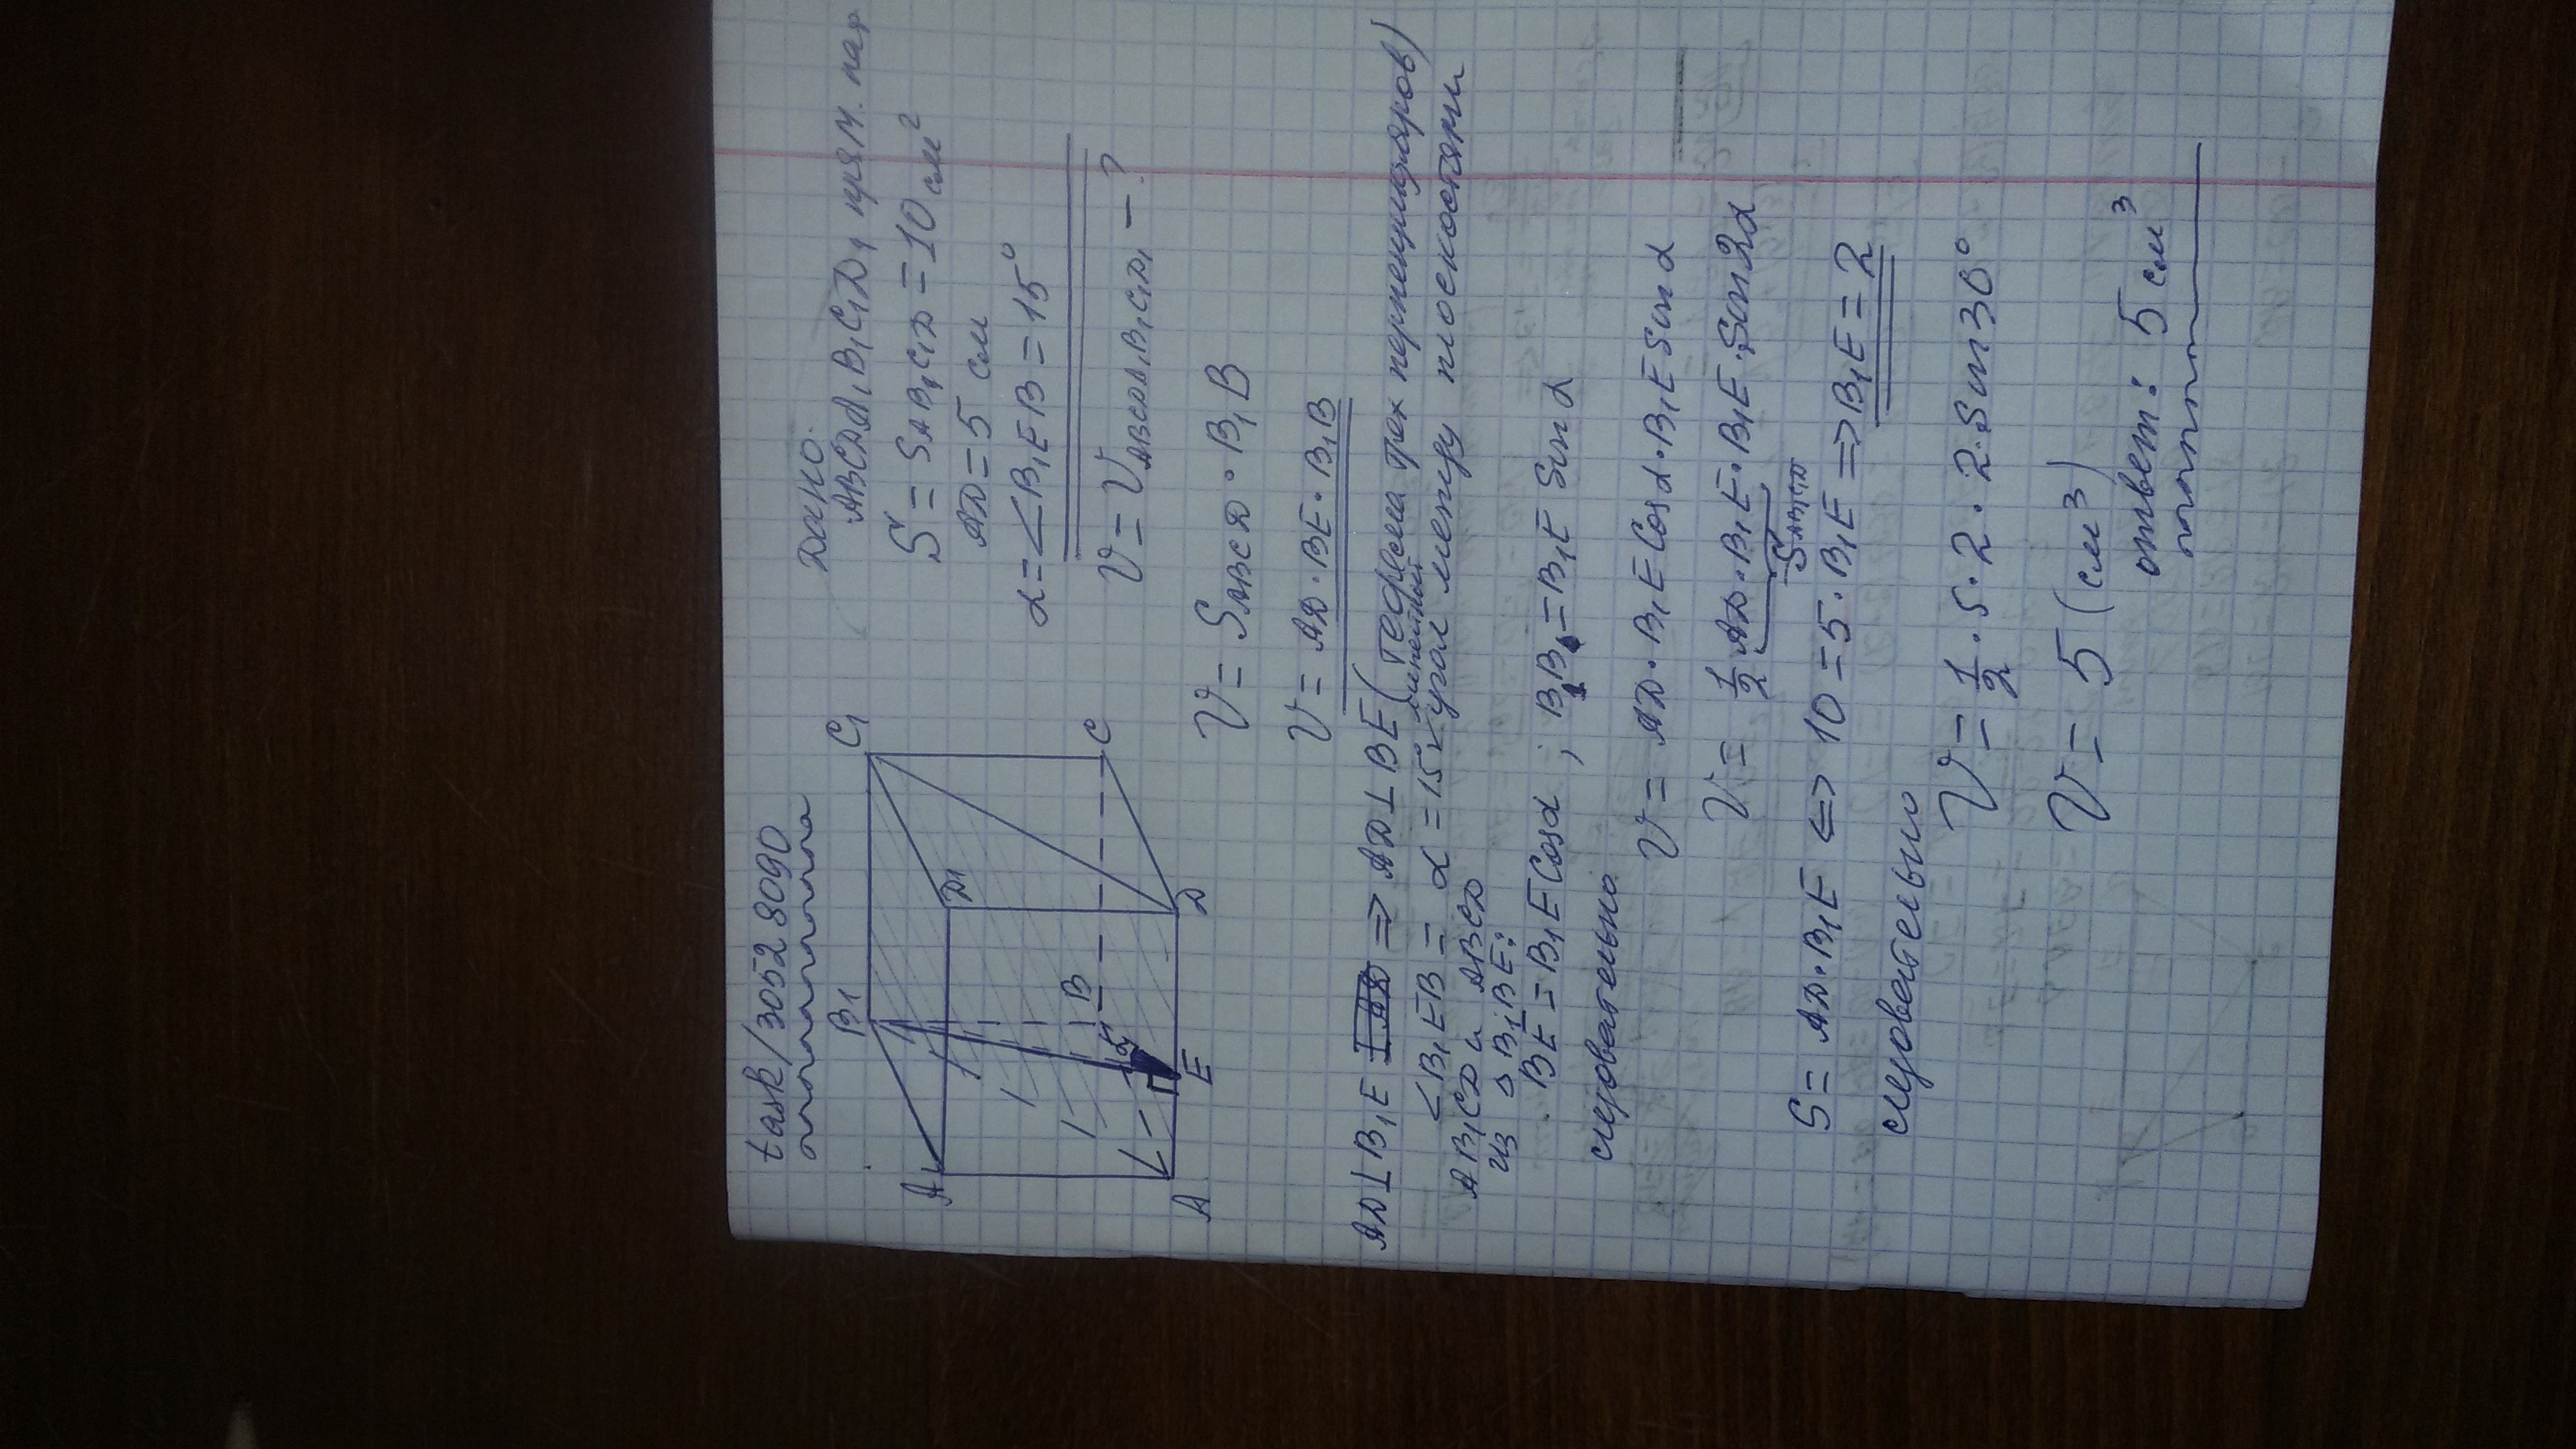 task/30528090
Дано:
ABCDA₁B₁C₁D₁ прям. пар
S = S AB₁C₁D = 10 см²
AD = 5 см
α = <B₁EB = 15°
V = V ABCDA₁B₁C₁D₁ – ?
B1
C1
A
D1
B
α
A
E
D
C
V = S ABCD · B₁B
V = AD · BE · B₁B
AD ⊥ B₁E => AD ⊥ BE (теорема трех перпендикуляров)
<B₁EB = α = 15° линейный угол между плоскостями
AB₁CD и ABCD
из △ B₁BE:
BE = B₁E Cosα ; B₁B = B₁E Sinα
следовательно
V = AD · B₁E Cosα · B₁E Sinα
V = 1/2 AD · B₁E · B₁E · Sin2α
S AB₁C₁D
S = AD · B₁E <=> 10 = 5 · B₁E => B₁E = 2
следовательно
V = 1/2 · 5 · 2 · 2 · Sin30°
V = 5 (см³)
ответ: 5 см³